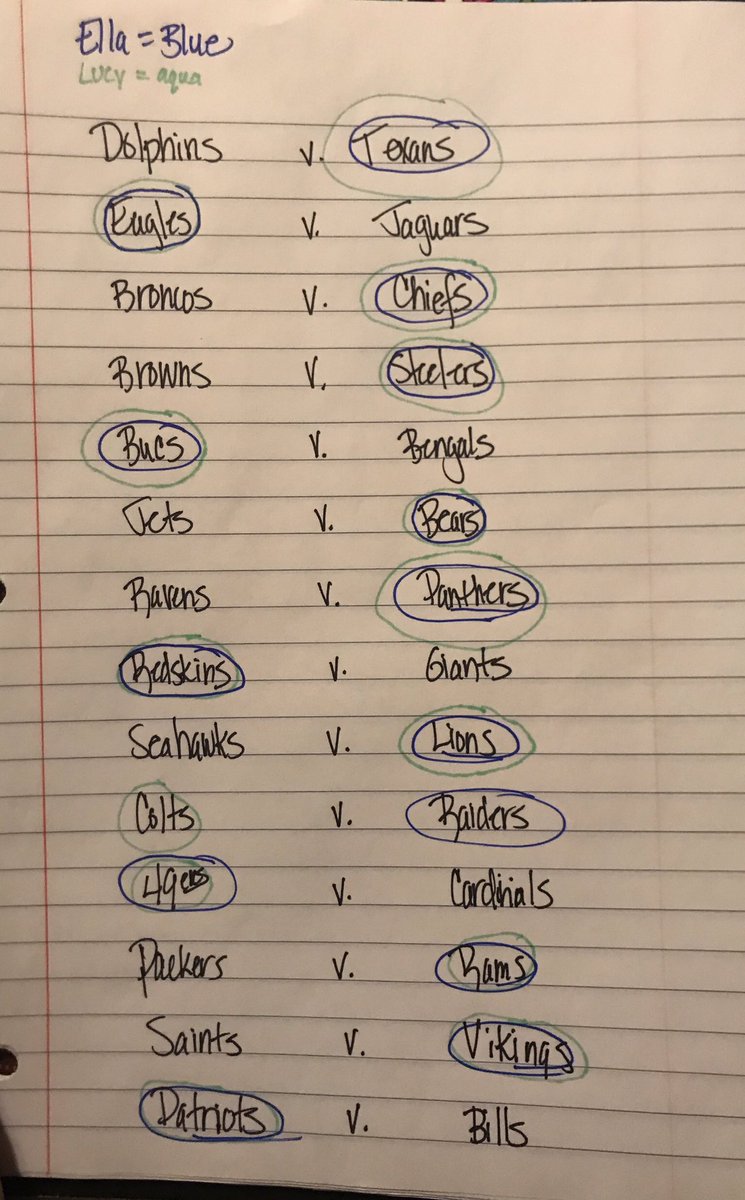 Ella = Blue
Lucy = aqua
Dolphins v. Texans
Eagles v. Jaguars
Broncos v. Chiefs
Browns v. Steelers
Bucs v. Bengals
Jets v. Bears
Ravens v. Panthers
Redskins v. Giants
Seahawks v. Lions
Colts v. Raiders
49ers v. Cardinals
Packers v. Rams
Saints v. Vikings
Patriots v. Bills